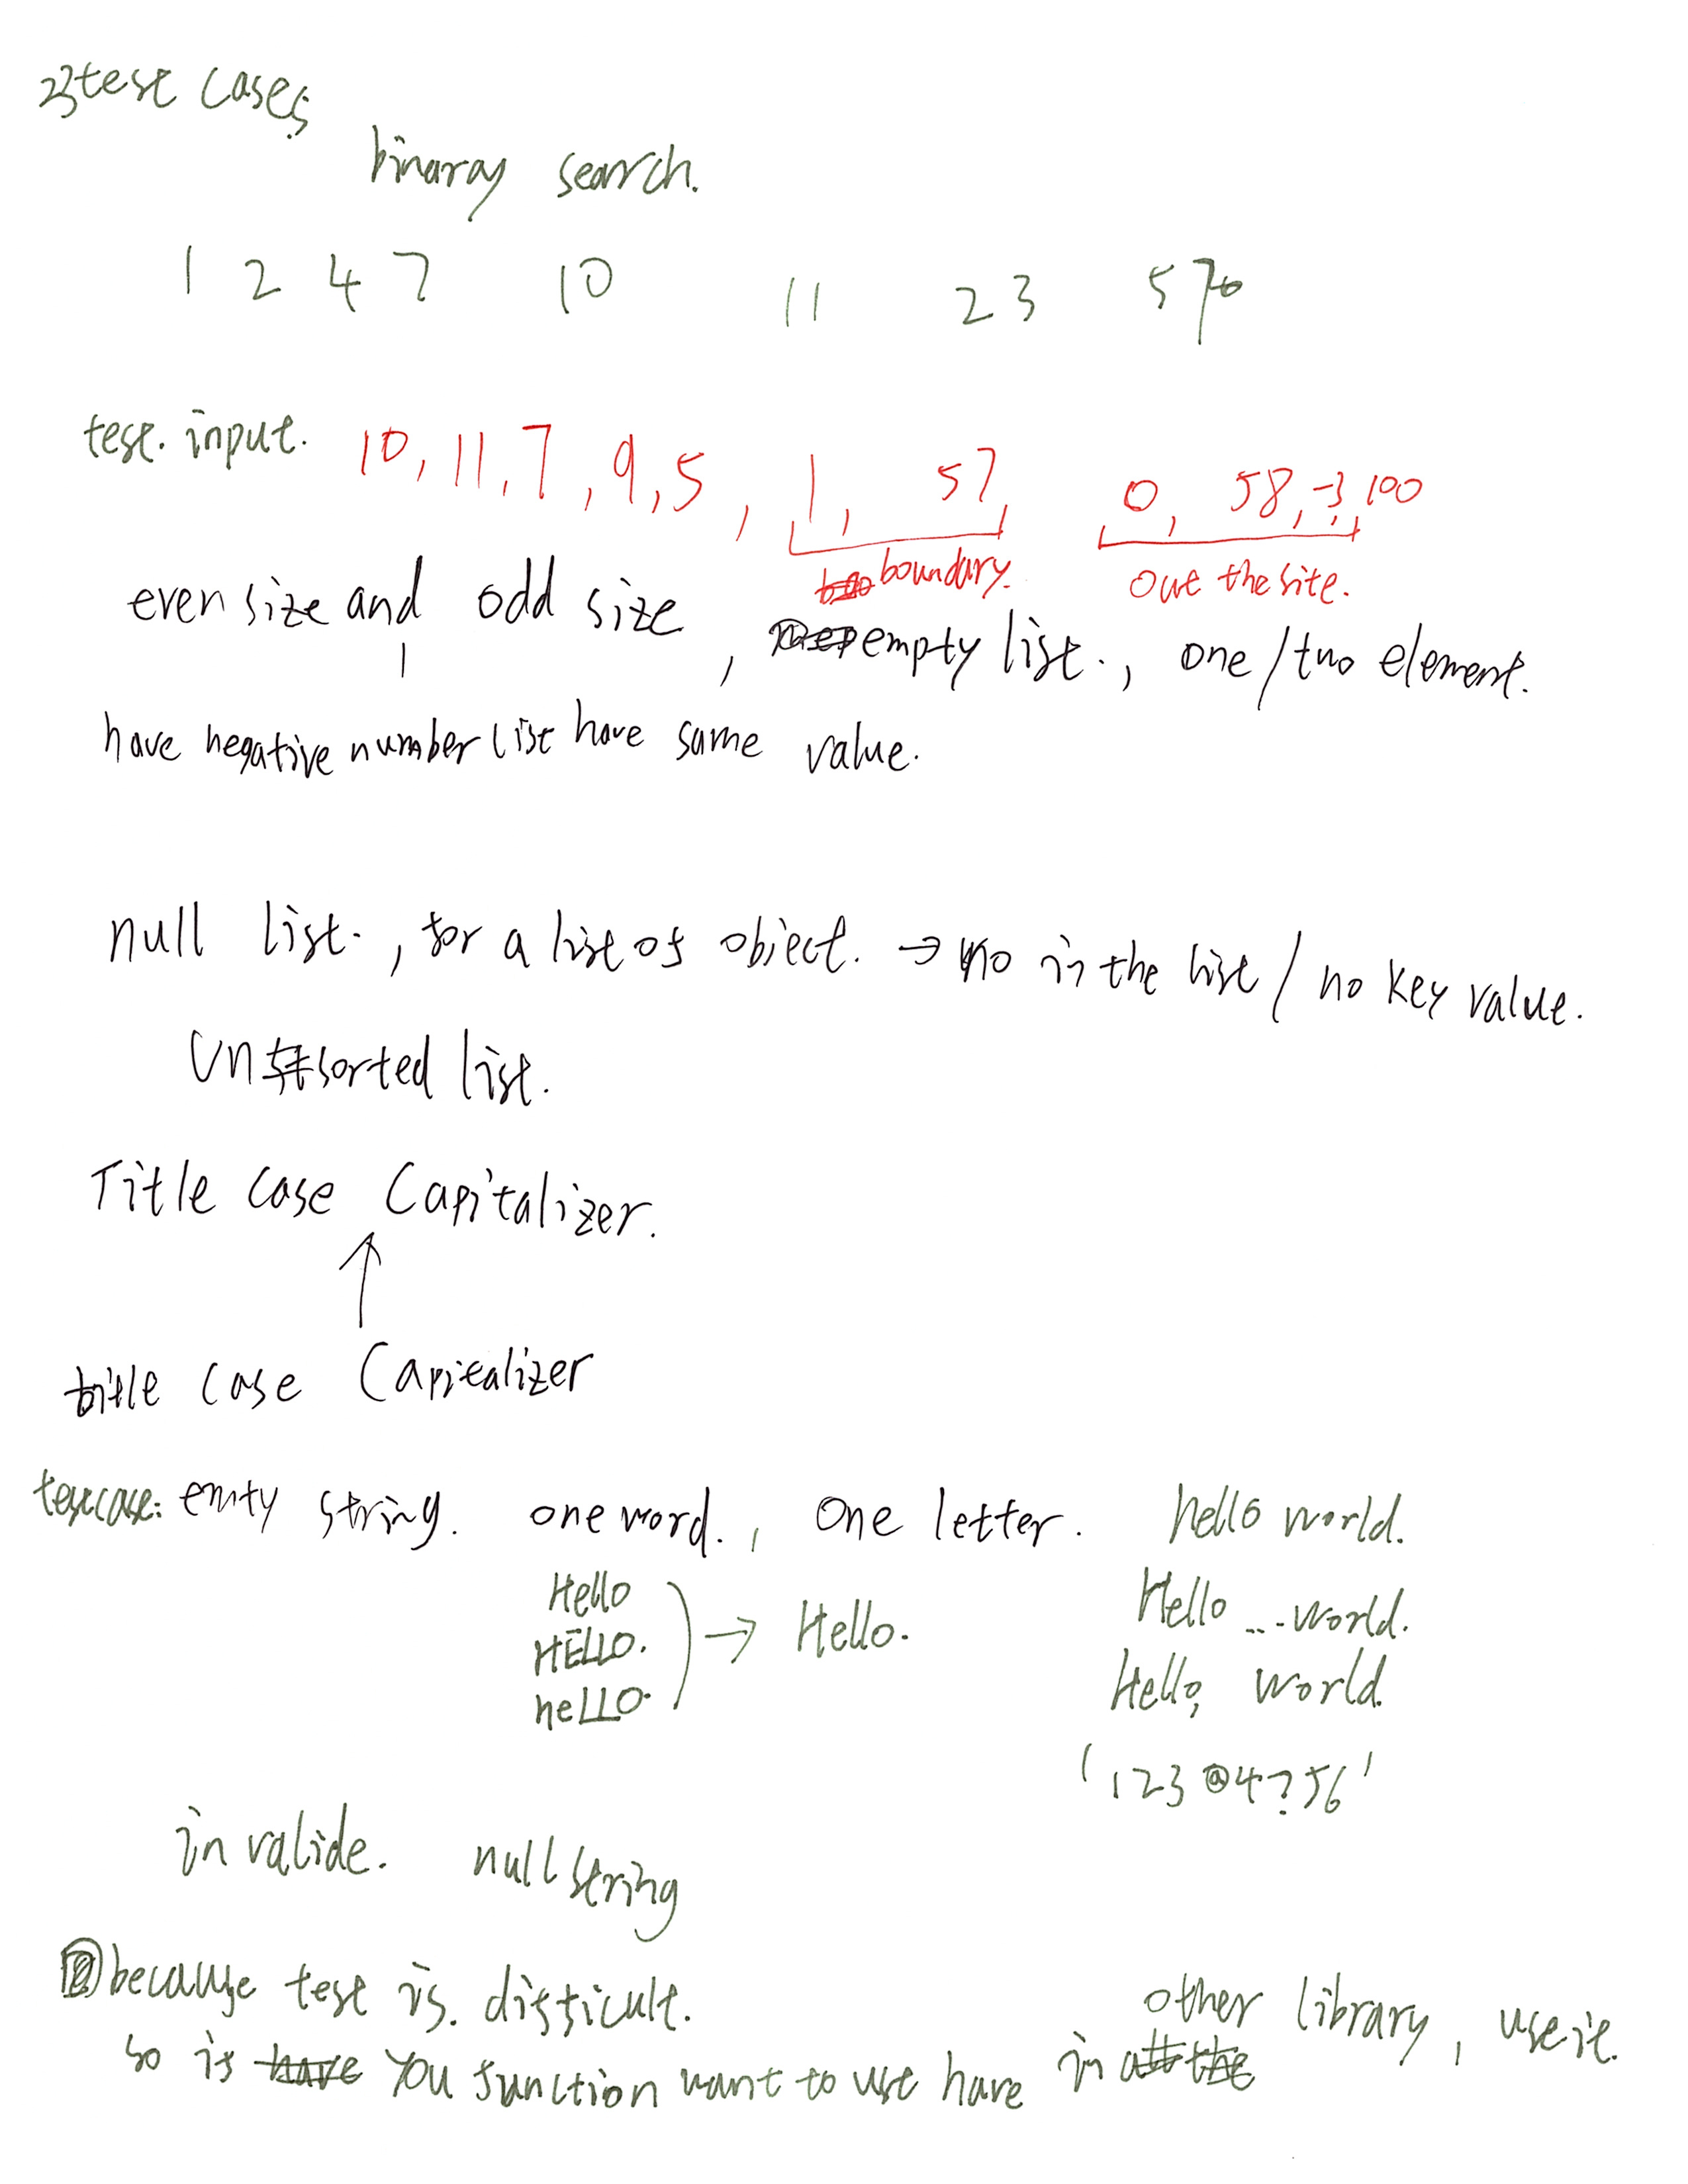 test cases
binaray search.
1 2 4 7 10 11 23 57
test. input. 10, 11, 7, 9, 5, 1, 57, 0, 58, -3, 100
boundary. out the site.
even size and odd size, empty list., one/two element.
have negative number list have same value.
null list., for a list of object. → no in the list / no key value.
Un sorted list.
Title Case Capitalizer.
↑
title case Capitalizer
testcase: emty string. one word., One letter. hello world.
Hello
HELLO.
heLLO.
→ Hello.
Hello ... world.
Hello, world.
'123@4?56'
in valide. null string
because test is. difficult.
so if you function want to use have in other library, use it.